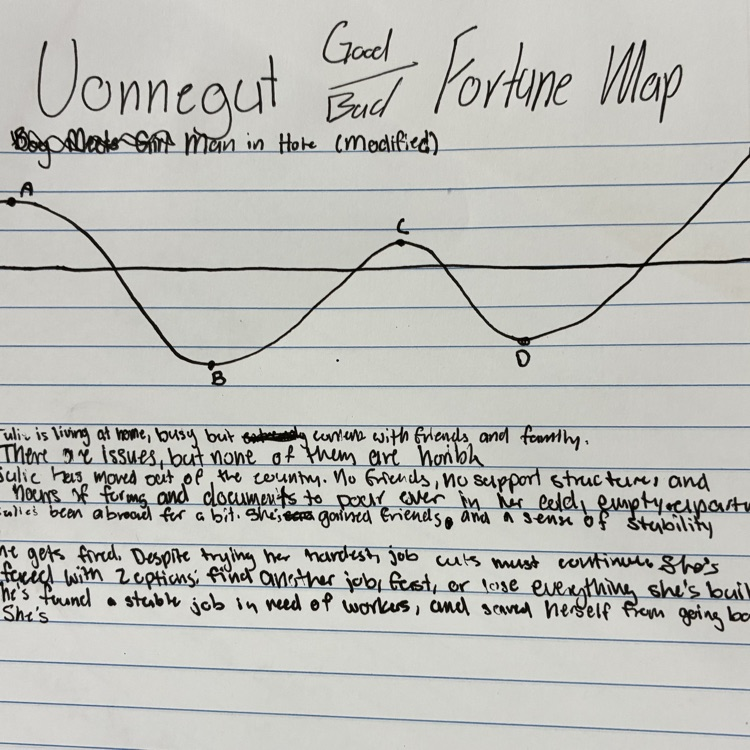 Vonnegut Good/Bad Fortune Map
Man in Hole (modified)
A
C
B
D
is living at home, busy but content with friends and family.
There are issues, but none of them are horrible
Julie has moved out of the country. No friends, no support structures, and
hours of forms and documents to pour over in her cold, empty apartm
been abroad for a bit. She's gained friends, and a sense of stability
gets fired. Despite trying her hardest, job cuts must continue. She's
faced with 2 options: find another job, fast, or lose everything she's buil
he's found a stable job in need of workers, and saved herself from going
She's